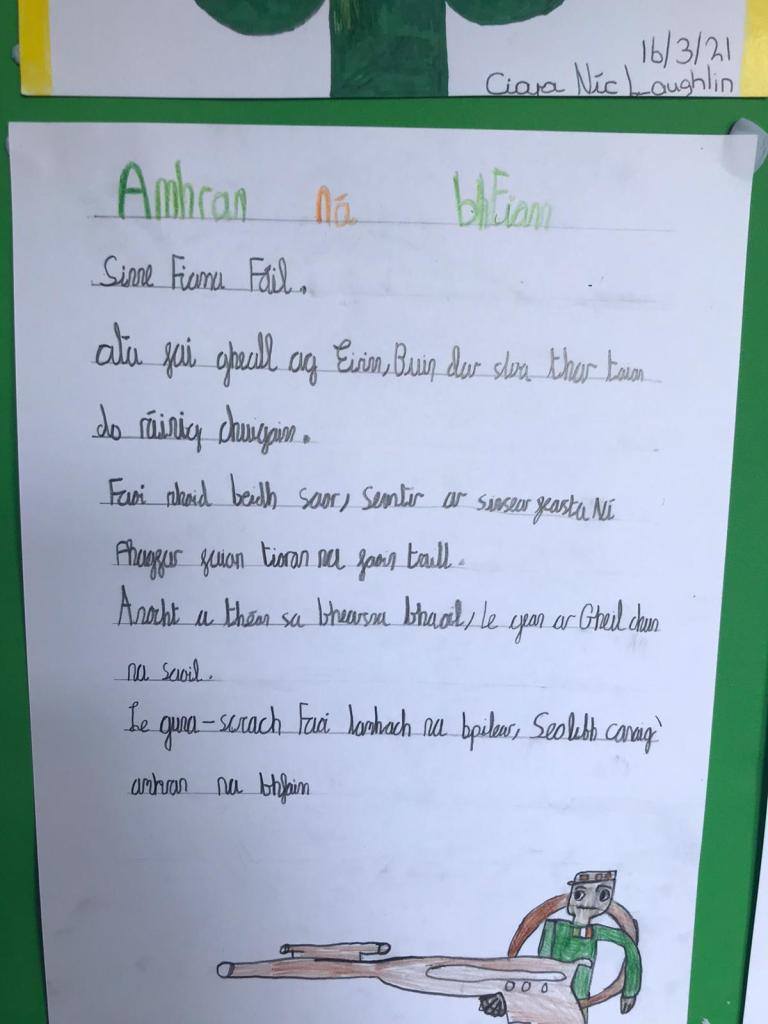 16/3/21
Ciara Nic Laughlin
Amhran ná bhFiann
Sinne Fianna Fáil.
atá fai gheall ag Eirinn, Buin dar slua thar
do ráinig chugain.
Faoi mhoid beidh saor, Seantir ar sinsear feasta Ní
fhagfar
Anocht a théam sa bhearna bhaoil, le gean ar Gheil chun
na saoil.
le guna-scrach Faoi lamhach na bpilear, Seolibh canaig
amhran na bhfain